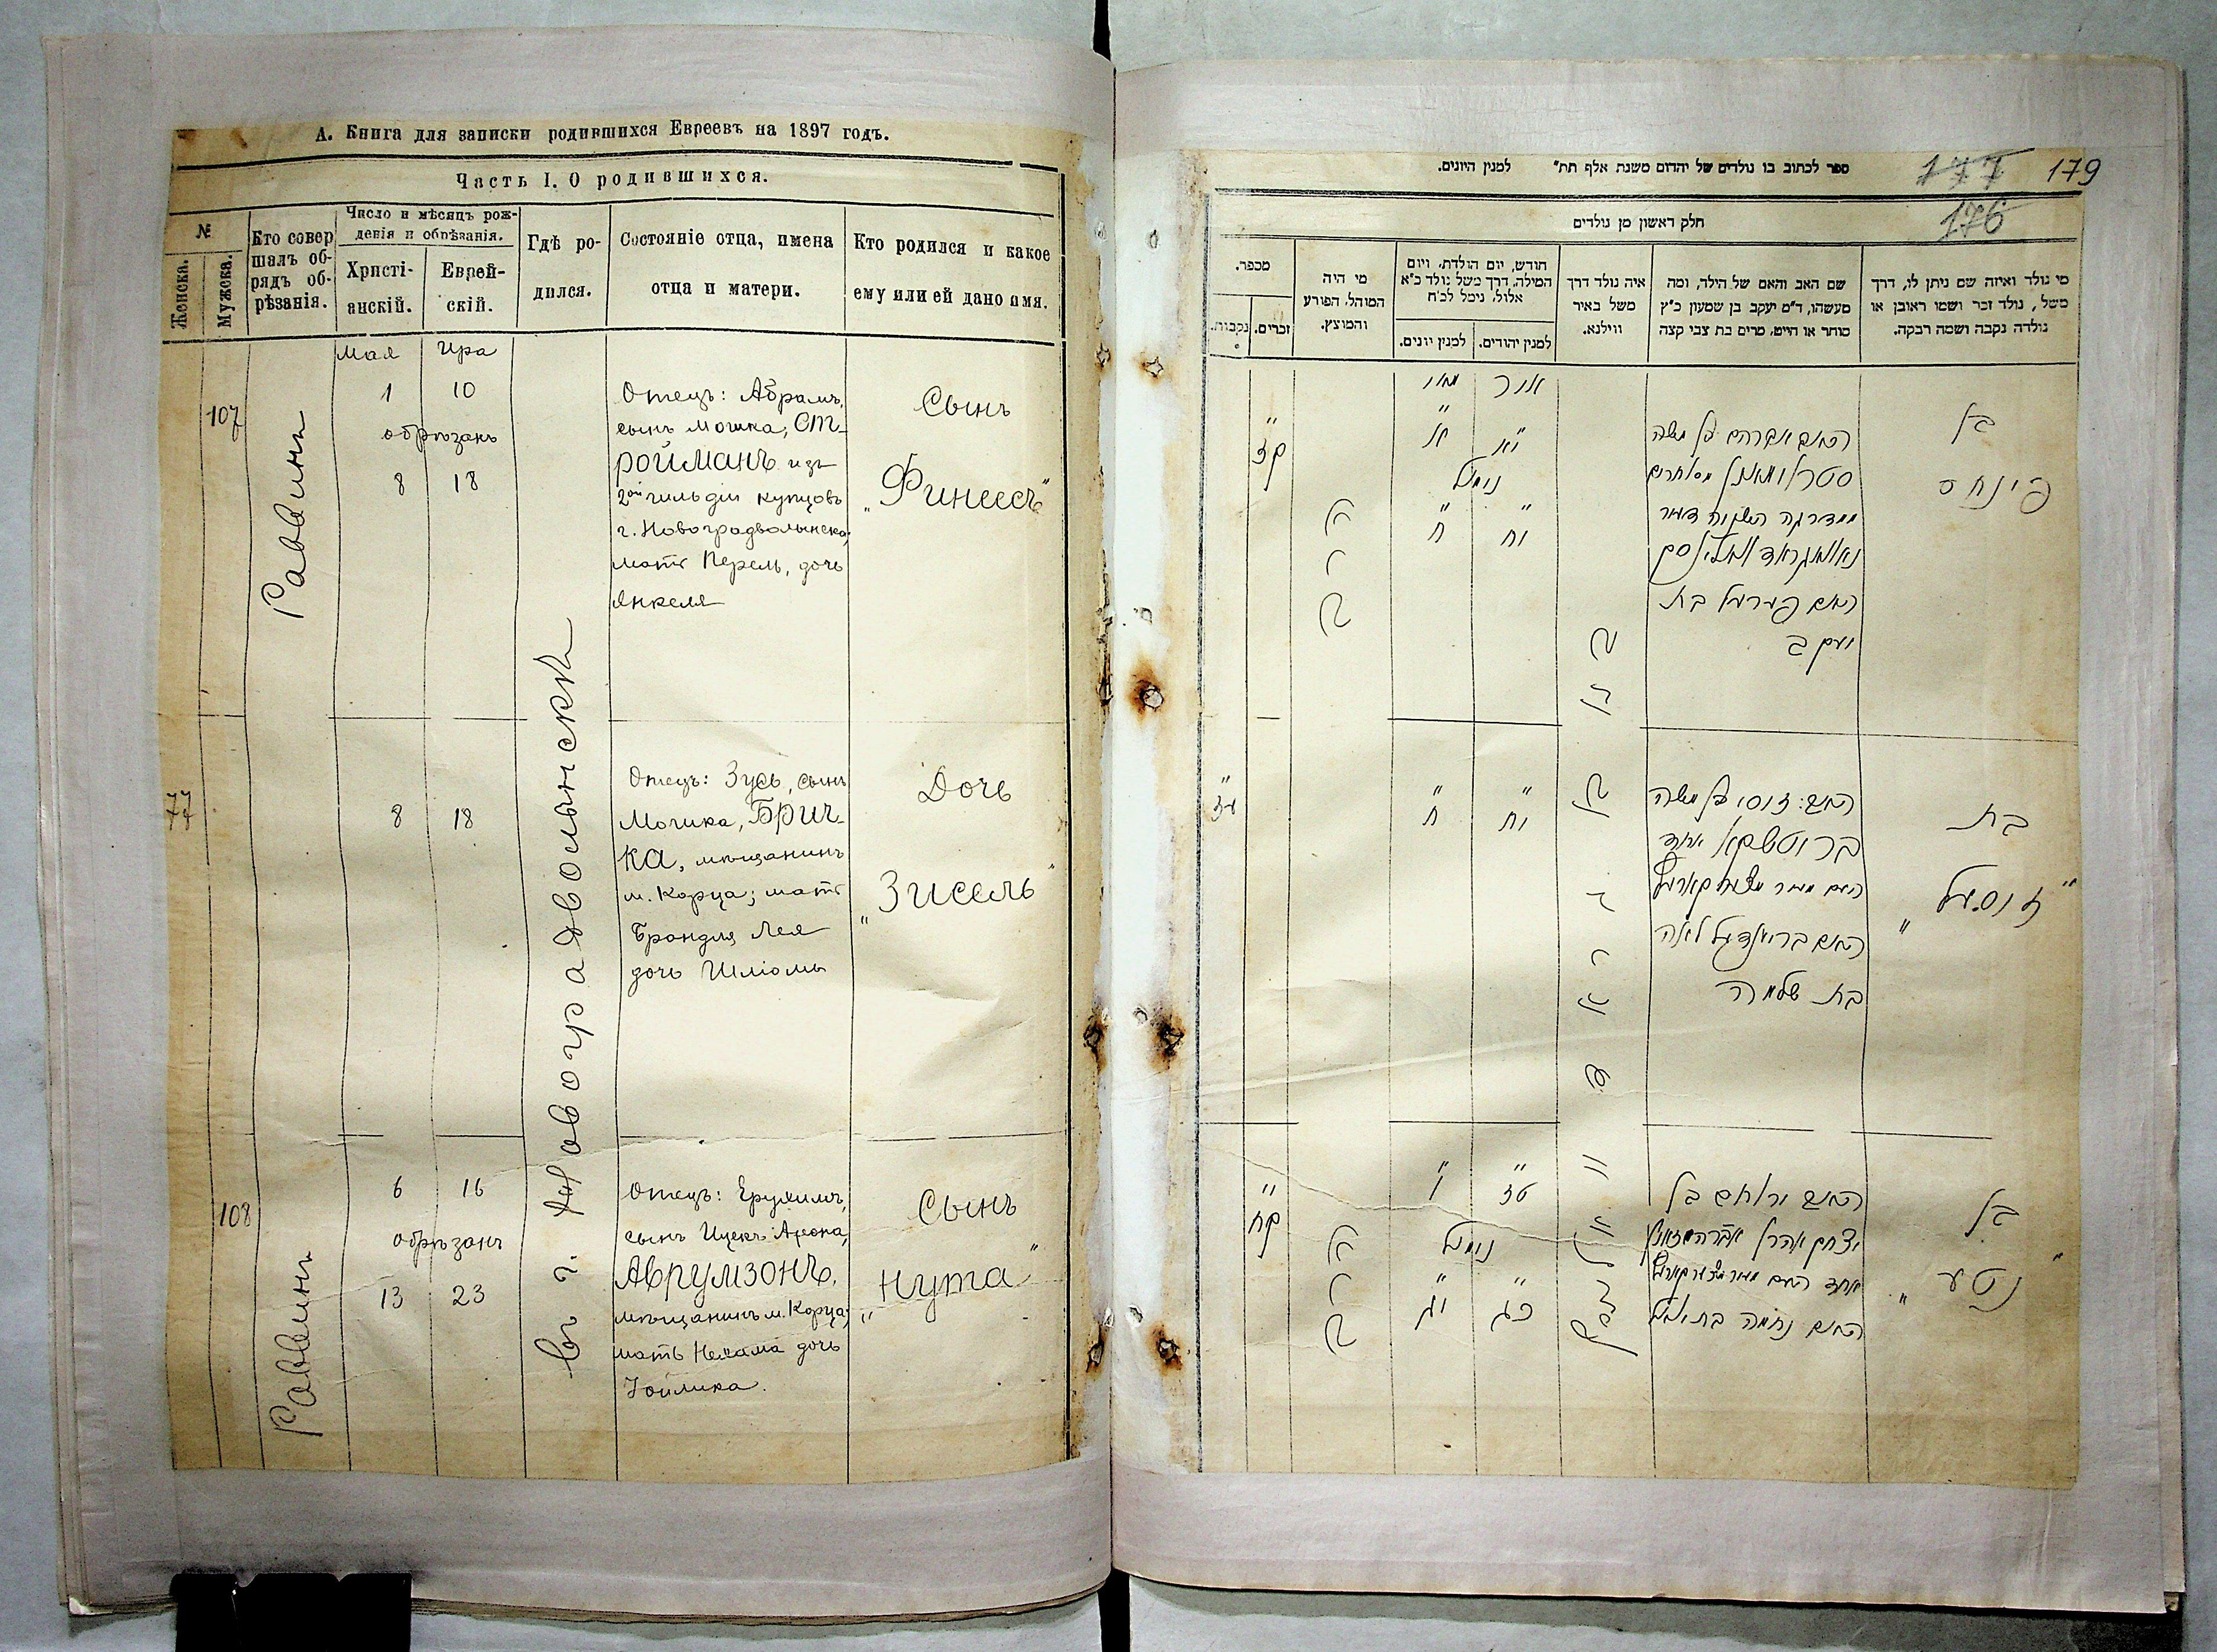 А. Книга для записки родившихся Евреевъ на 1897 годъ.
Часть I. О родившихся.
№
Женска.
Мужска.
Кто совер
шалъ об-
рядъ об-
рѣзанія.
Число и мѣсяцъ рож-
денія и обрѣзанія.
Христі-
анскій.
Еврей-
скій.
Гдѣ ро-
дился.
Состояніе отца, имена
отца и матери.
Кто родился и какое
ему или ей дано имя.
Мая Ира
107
Раввинъ
1 10
обрѣзанъ
8 18
Отецъ: Абрамъ,
сынъ Мошка, Ст-
ройманъ изъ
2ой гильдіи купцовъ
г. Новоградволынска,
мать Перель, дочь
Янкеля
Сынъ
„Финеесъ“
въ г. Новоградволынскѣ
77
8 18
Отецъ: Зусь, сынъ
Мошка, Брич-
ка, мѣщанинъ
м. Корца; мать
Брандля Лея
дочь Шліомы
Дочь
„Зисель“
108
Раввинъ
6 16
обрѣзанъ
13 23
Отецъ: Ерухимъ,
сынъ Ицекъ Арона,
Аврумзонъ,
мѣщанинъ м. Корца;
мать Нехама дочь
Зойлика.
Сынъ
„Нута“
ספר לכתוב בו נולדים של יהדום משנת אלף תת״ למנין היונים.
177 179
176
חלק ראשון מן נולדים
מספר.
נקבות.
זכרים.
מי היה
המוהל, הפורע
והמוצץ.
חודש, יום הולדת, ויום
המילה, דרך משל נולד כ״א
אלול, נימל לכ״ח
למנין יונים.
למנין יהודים.
איה נולד דרך
משל באיר
ווילנא.
שם האב והאם של הילד, ומה
מעשהו, ד״מ יעקב בן שמעון כ״ץ
סוחר או חייט, מרים בת צבי קצה
מי נולד ואיזה שם ניתן לו, דרך
משל, נולד זכר ושמו ראובן או
נולדה נקבה ושמה רבקה.
מאי אייר
קז
נימול
ח יח
האב אברהם בן משה
האם פערעל בת
יעקב
בן
פינחס
עז
ח יח
האב: זוסי בן משה
האם בריינדיל לאה
בת שלמה
בת
„זוסעל“
קח
ו טז
נימול
יג כג
האב ירוחם בן
יצחק אהרן אברהמזאהן
האם נחמה בת
בן
„נטע“